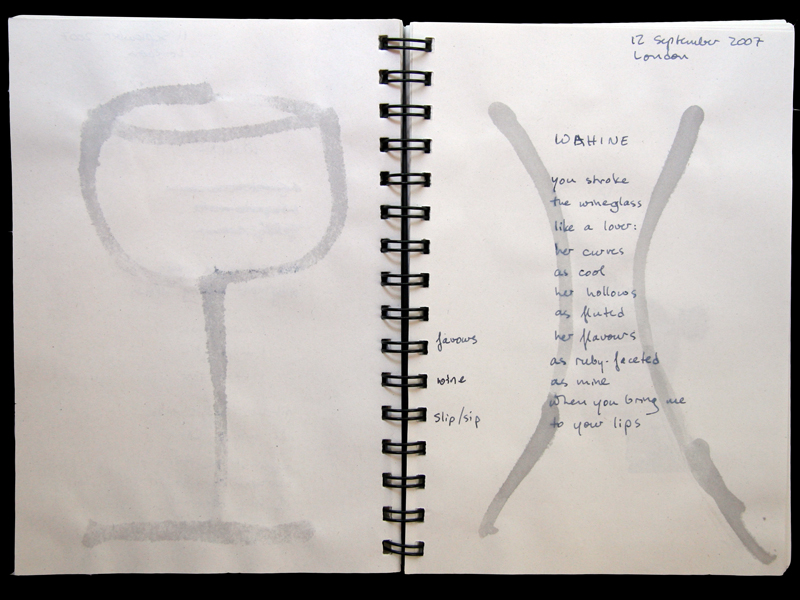 12 September 2007
London
WAHINE
you stroke
the wineglass
like a lover:
her curves
as cool
her hollows
as fluted
her flavours
as ruby-faceted
as mine
when you bring me
to your lips
favours
wine
slip/sip